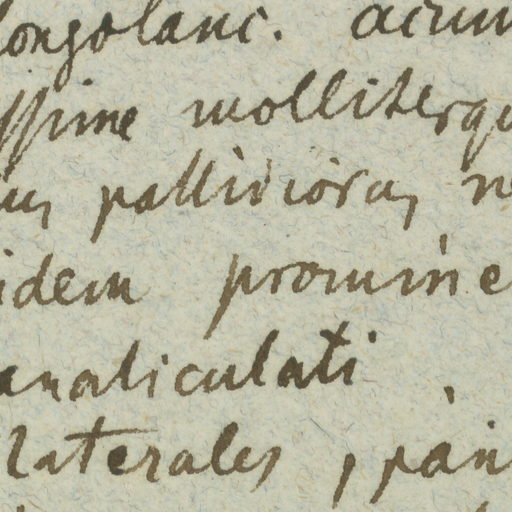 longolanc. acum
ssime molliterqu
pallidiora, n
idem promine
analiculati
laterales, pan